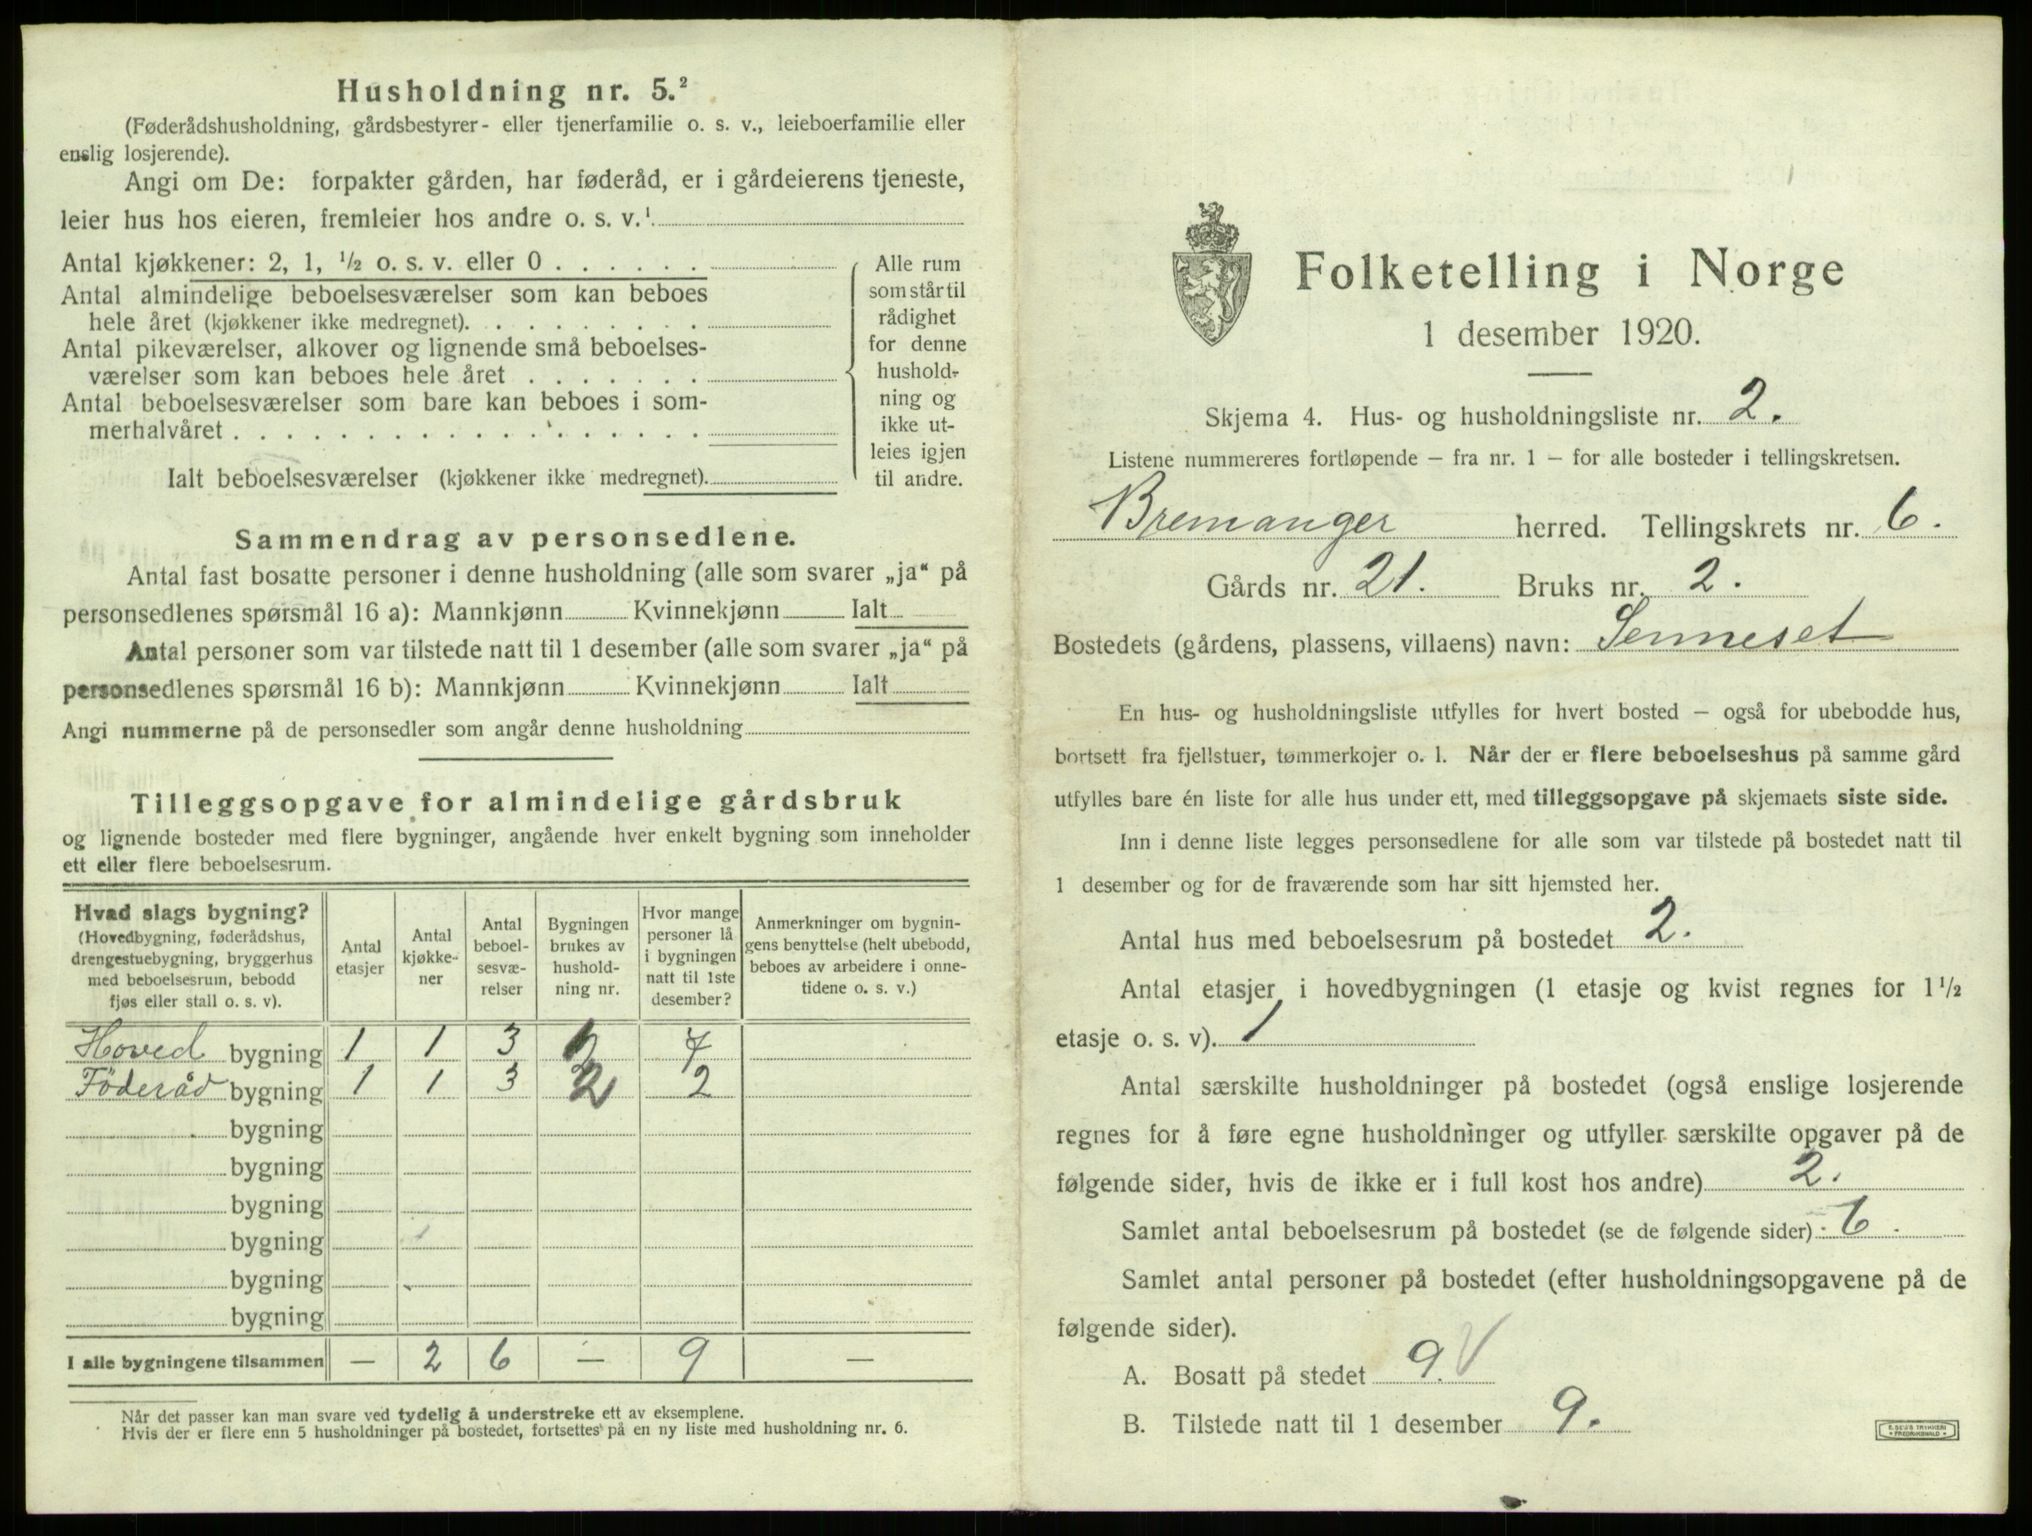 Husholdning nr. 5.²
(Føderådshusholdning, gårdsbestyrer- eller tjenerfamilie o. s. v., leieboerfamilie eller
enslig losjerende).
Angi om De: forpakter gården, har føderåd, er i gårdeierens tjeneste,
leier hus hos eieren, fremleier hos andre o. s. v.¹
Antal kjøkkener: 2, 1, ½ o. s. v. eller 0 . . . . . .
Antal almindelige beboelsesværelser som kan beboes
hele året (kjøkkener ikke medregnet). . . . . . . . .
Antal pikeværelser, alkover og lignende små beboelses-
værelser som kan beboes hele året . . . . . . .
Antal beboelsesværelser som bare kan beboes i som-
merhalvåret . . . . . . . . . . . . . . . . . .
Ialt beboelsesværelser (kjøkkener ikke medregnet).
Alle rum
som står til
rådighet
for denne
hushold-
ning og
ikke ut-
leies igjen
til andre.
Sammendrag av personsedlene.
Antal fast bosatte personer i denne husholdning (alle som svarer „ja“ på
personsedlenes spørsmål 16 a): Mannkjønn Kvinnekjønn Ialt
Antal personer som var tilstede natt til 1 desember (alle som svarer „ja“ på
personsedlenes spørsmål 16 b): Mannkjønn Kvinnekjønn Ialt
Angi nummerne på de personsedler som angår denne husholdning
Tilleggsopgave for almindelige gårdsbruk
og lignende bosteder med flere bygninger, angående hver enkelt bygning som inneholder
ett eller flere beboelsesrum.
Hvad slags bygning?
(Hovedbygning, føderådshus,
drengestuebygning, bryggerhus
med beboelsesrum, bebodd
fjøs eller stall o. s. v).
Antal
etasjer
Antal
kjøkke-
ner
Antal
beboel-
sesvæ-
relser
Bygningen
brukes av
hushold-
ning nr.
Hvor mange
personer lå
i bygningen
natt til 1ste
desember?
Anmerkninger om bygnin-
gens benyttelse (helt ubebodd,
beboes av arbeidere i onne-
tidene o. s. v.)
Hoved bygning 1 1 3 7
Föderåd bygning 1 1 3 2 2
bygning
bygning
bygning
bygning
bygning
bygning
I alle bygningene tilsammen — 2 6 — 9 —
Når det passer kan man svare ved tydelig å understreke ett av eksemplene.
Hvis der er flere enn 5 husholdninger på bostedet, fortsettes på en ny liste med husholdning nr. 6.
Folketelling i Norge
1 desember 1920.
Skjema 4. Hus- og husholdningsliste nr. 2.
Listene nummereres fortløpende — fra nr. 1 — for alle bosteder i tellingskretsen.
Bremanger herred. Tellingskrets nr. 6.
Gårds nr. 21. Bruks nr. 2.
Bostedets (gårdens, plassens, villaens) navn: Senneset
En hus- og husholdningsliste utfylles for hvert bosted — også for ubebodde hus,
bortsett fra fjellstuer, tømmerkojer o. l. Når der er flere beboelseshus på samme gård
utfylles bare én liste for alle hus under ett, med tilleggsopgave på skjemaets siste side.
Inn i denne liste legges personsedlene for alle som var tilstede på bostedet natt til
1 desember og for de fraværende som har sitt hjemsted her.
Antal hus med beboelsesrum på bostedet 2.
Antal etasjer i hovedbygningen (1 etasje og kvist regnes for 1½
etasje o. s. v). 1
Antal særskilte husholdninger på bostedet (også enslige losjerende
regnes for å føre egne husholdninger og utfyller særskilte opgaver på de
følgende sider, hvis de ikke er i full kost hos andre) 2.
Samlet antal beboelsesrum på bostedet (se de følgende sider) 6.
Samlet antal personer på bostedet (efter husholdningsopgavene på de
følgende sider).
A. Bosatt på stedet 9. V
B. Tilstede natt til 1 desember 9.